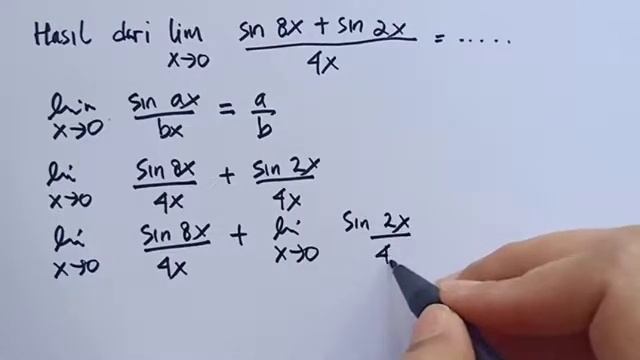 Hasil dari lim x→0 (sin 8x + sin 2x)/4x = .....
lim x→0 sin ax/bx = a/b
lim x→0 sin 8x/4x + sin 2x/4x
lim x→0 sin 8x/4x + lim x→0 sin 2x/4